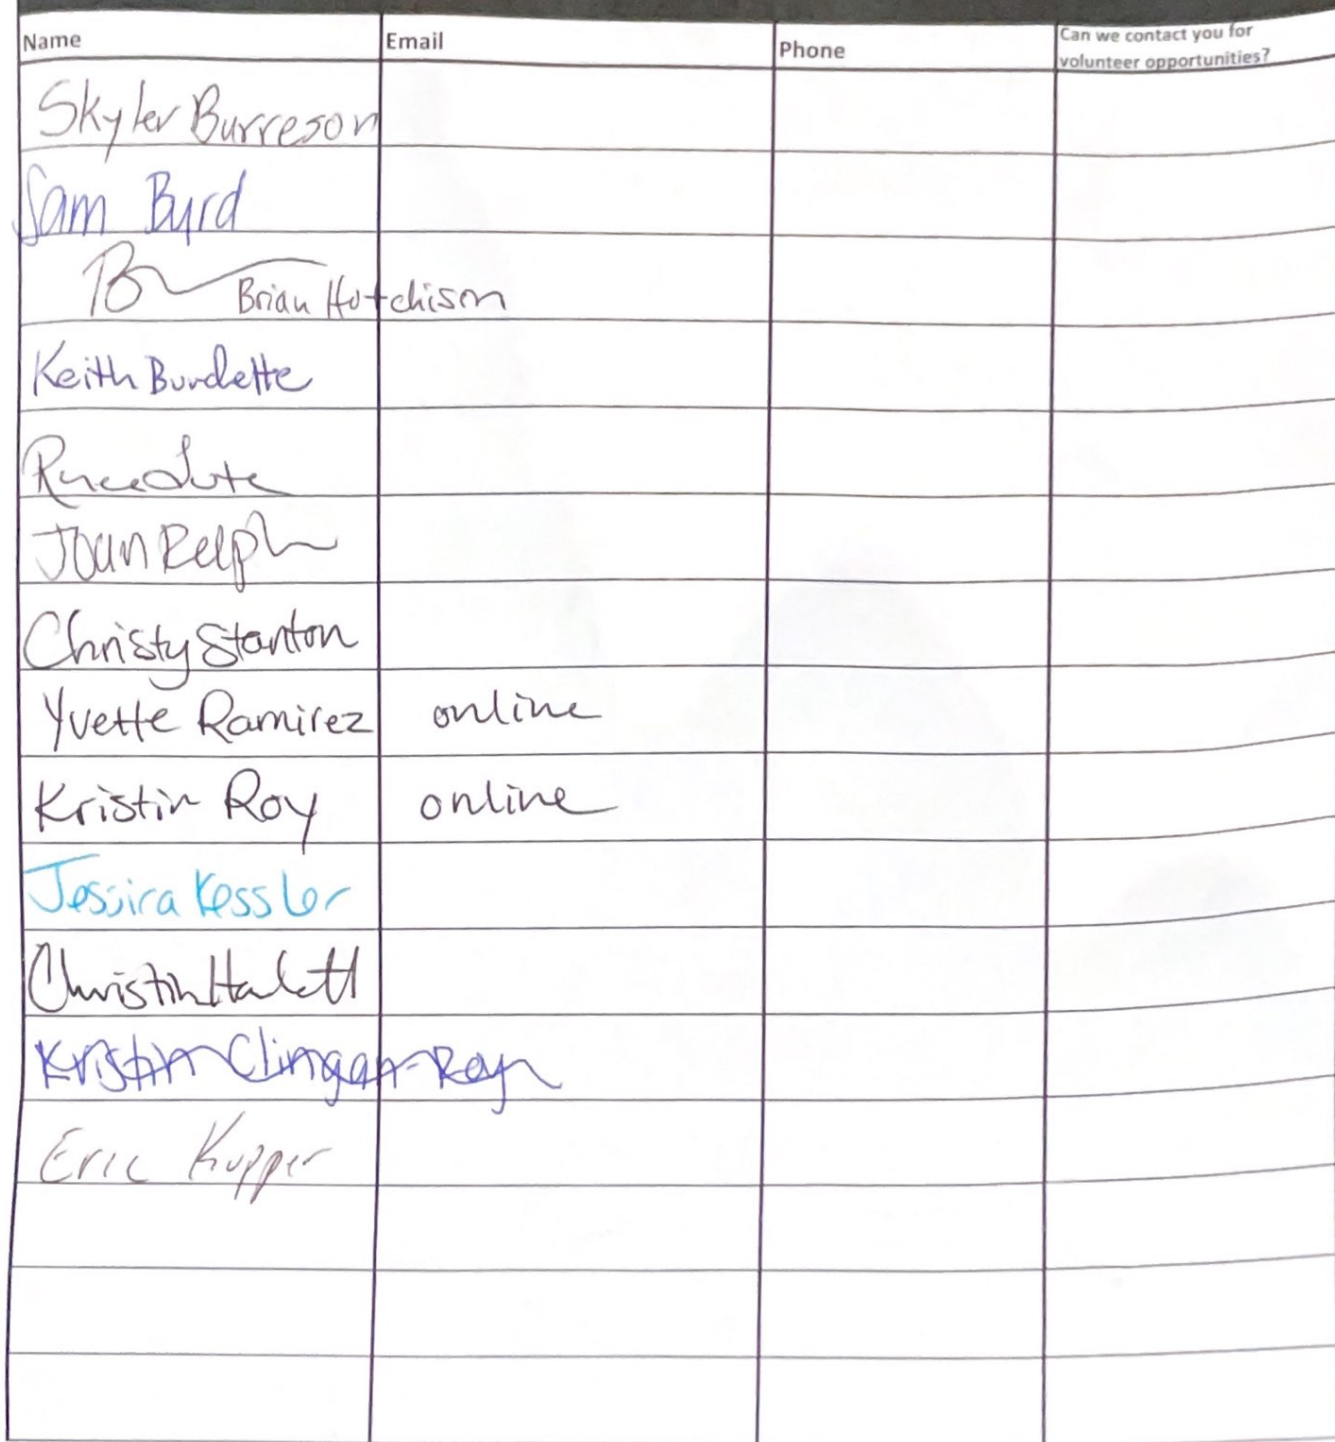 Name Email Phone Can we contact you for
volunteer opportunities?
Skyler Burreson
Sam Byrd
Brian Hutchison
Keith Burdette
Joan Relph
Christy Stanton
Yvette Ramirez online
Kristin Roy online
Jessica Kessler
Christin
Kristin Clingan-Roy
Eric Kupper